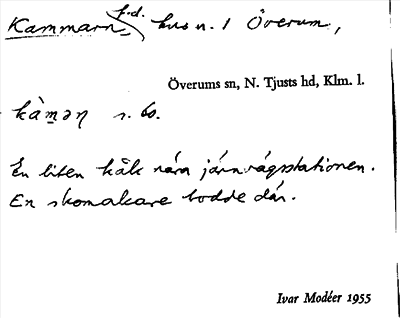 Kammarn, f.d. hus n. I Överum,
Överums sn, N. Tjusts hd, Klm. l.
kàmən s. b.
En liten kåk nära järnvägsstationen.
En skomakare bodde där.
Ivar Modéer 1955